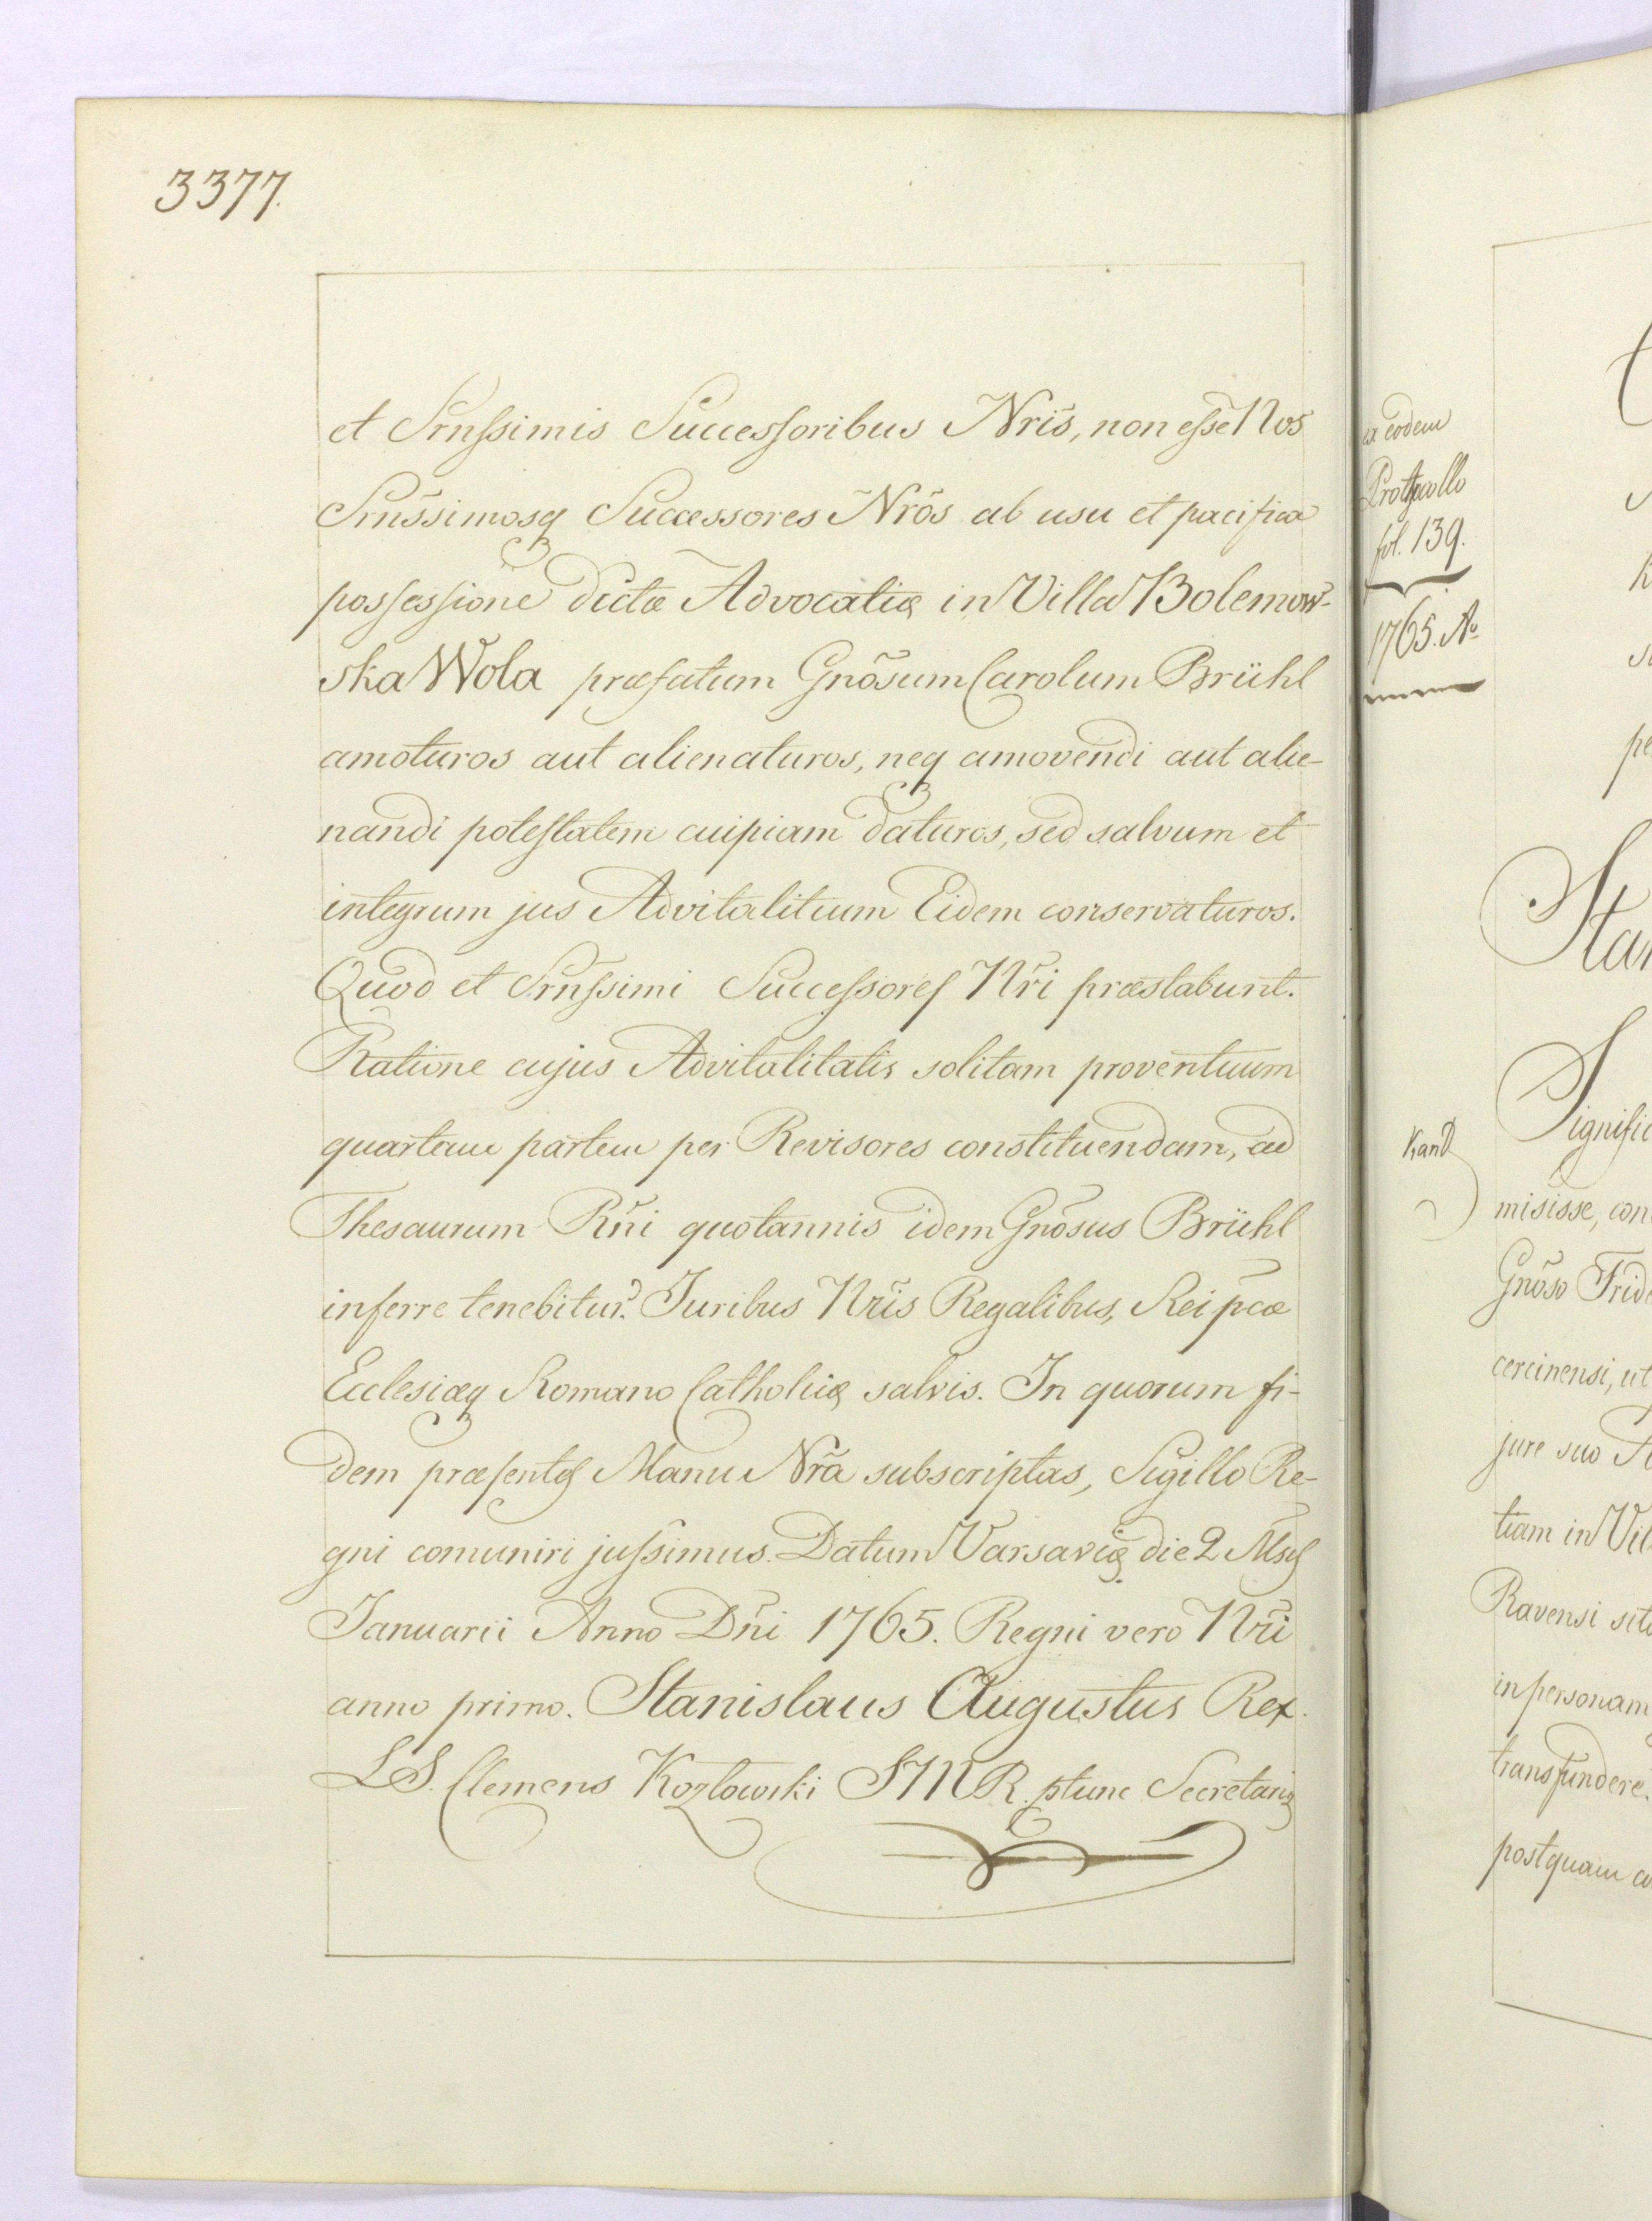 3377.
et Srnssimis Successoribus Nris, non esse Nos
Srnssimosq Successores Nros ab usu et pacifica
possessione dictæ Advocatiæ in Villa Bolemow-
ska Wola præfatum Gnosum Carolum Brühl
amoturos aut alienaturos, neq amovendi aut alie-
nandi potestatem cuipiam daturos, sed salvum et
integrum jus Advitalitium Eidem conservaturos.
Quod et Srnssimi Successores Nri præstabunt.
Ratione cujus Advitalitatis solitam proventuum
quartam partem per Revisores constituendam, ad
Thesaurum Rni quotannis idem Gnosus Brühl
inferre tenebitur. Juribus Nris Regalibus, Reipcæ
Ecclesiæq Romano Catholicæ salvis. In quorum fi-
dem præsentes Manu Nra subscriptas, Sigillo Re-
gni comuniri jussimus. Datum Varsaviæ die 2 Msis
Januarii Anno Dni 1765. Regni vero Nri
anno primo. Stanislaus Augustus Rex.
LS. Clemens Kozlowski SMR ptunc Secretariq
ex eodem
Prothocollo
fol. 139.
1765. Ao
Kand
Signific
misisse, con
Gnoso Frid
cercinensi, ut
jure suo
tiam in Vil
Ravensi sit
in personam
transfundere.
postquam